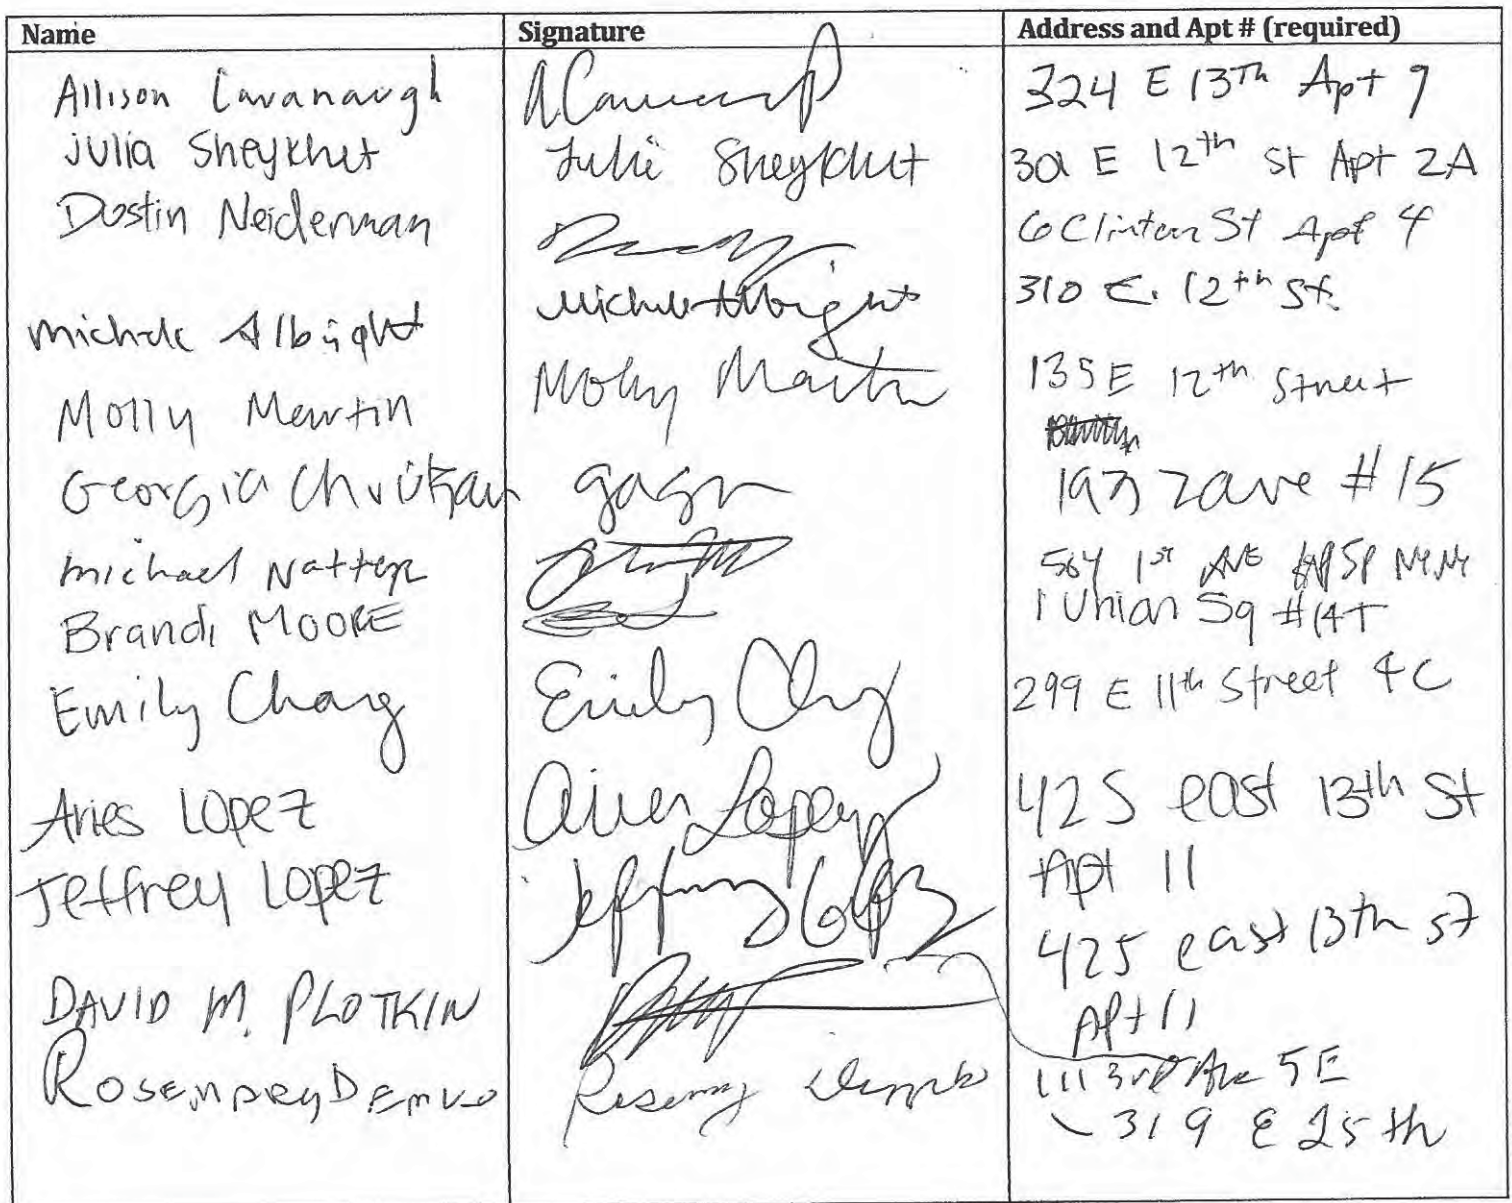 Name Signature Address and Apt # (required)
Allison Cavanaugh 324 E 13th Apt 9
Julia Sheykhet Julie Sheykhet 301 E 12th St Apt 2A
Dustin Neiderman 6 Clinton St Apt 4
Michele Albright Michele Albright 310 E. 12th St.
Molly Martin Molly Martin 135 E 12th Street
Georgia 2 ave #15
Michael Natter 564 1st Ave NY, NY
Brandi MOORE 1 Union Sq #14T
Emily Chang Emily Chg 299 E 11th Street 4C
Aries Lopez Aries Lopez 425 east 13th St
Apt 11
Jeffrey Lopez Jeffrey Lopez 425 east 13th st
Apt 11
DAVID M. PLOTKIN 111 3rd Ave 5E
Rosemary 319 E 25th